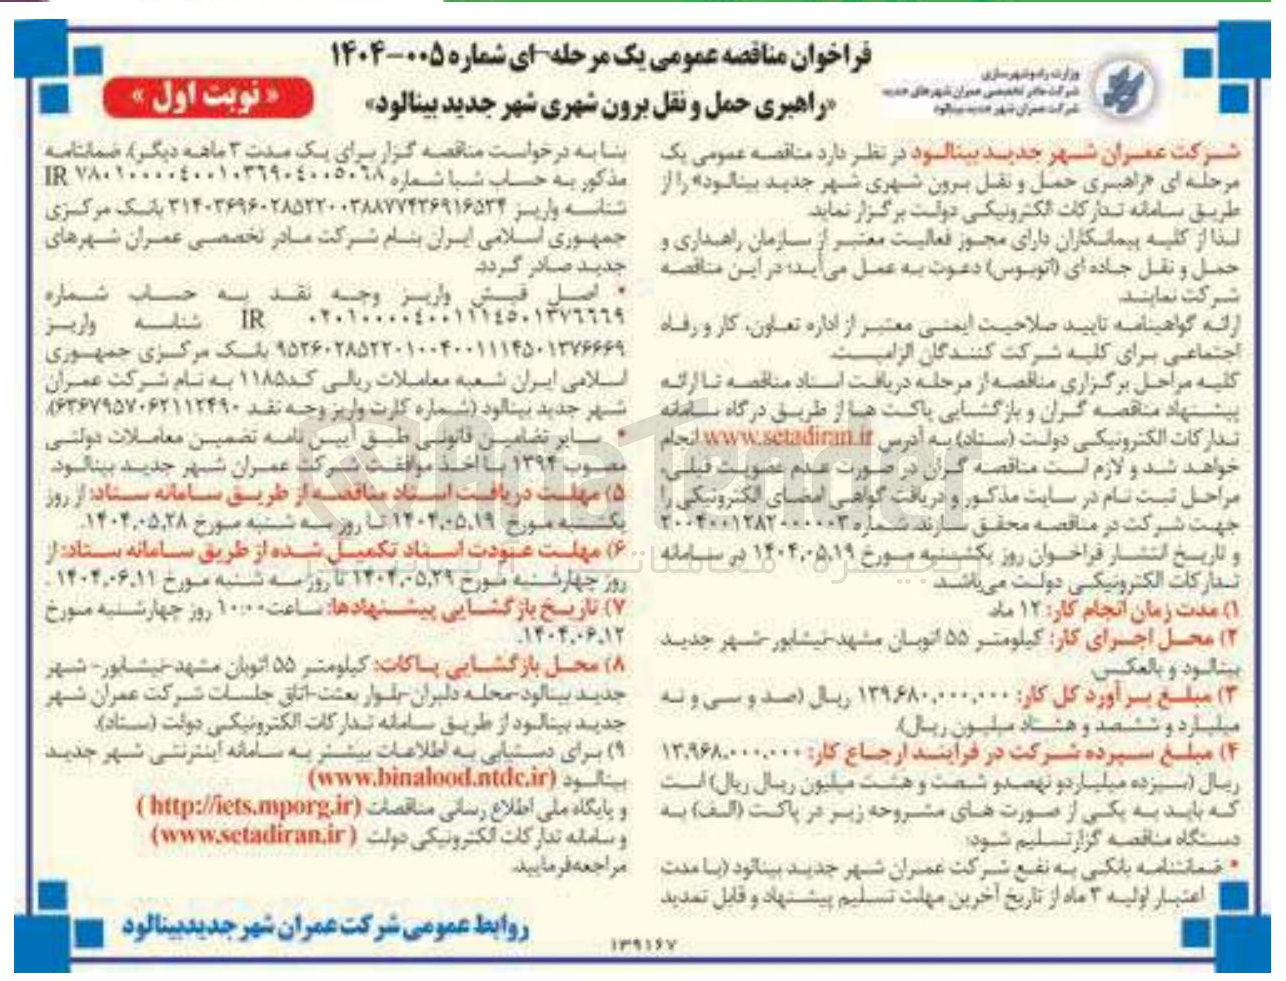 فراخوان مناقصه عمومی یک مرحله-ای شماره ۰۰۵-۱۴۰۴
«راهبری حمل و نقل برون شهری شهر جدید بینالود»
«نوبت اول»
وزارت راه و شهرسازی
شرکت مادر تخصصی عمران شهرهای جدید
شرکت عمران شهر جدید بینالود
شرکت عمران شهر جدید بینالود در نظر دارد مناقصه عمومی یک
مرحله ای «راهبری حمل و نقل برون شهری شهر جدید بینالود» را از
طریق سامانه تدارکات الکترونیکی دولت برگزار نماید.
لذا از کلیه پیمانکاران دارای مجوز فعالیت معتبر از سازمان راهداری و
حمل و نقل جاده ای (اتوبوس) دعوت به عمل می‌آید؛ در این مناقصه
شرکت نمایند.
ارائه گواهینامه تایید صلاحیت ایمنی معتبر از اداره تعاون، کار و رفاه
اجتماعی برای کلیه شرکت کنندگان الزامیست.
کلیه مراحل برگزاری مناقصه از مرحله دریافت اسناد مناقصه تا ارائه
پیشنهاد مناقصه گران و بازگشایی پاکت ها از طریق درگاه سامانه
تدارکات الکترونیکی دولت (ستاد) به آدرس www.setadiran.ir انجام
خواهد شد و لازم است مناقصه گران در صورت عدم عضویت قبلی،
مراحل ثبت نام در سایت مذکور و دریافت گواهی امضای الکترونیکی را
جهت شرکت در مناقصه محقق سازند. شماره ۲۰۰۴۰۰۱۲۸۲۰۰۰۰۰۳
و تاریخ انتشار فراخوان روز یکشنبه مورخ ۱۴۰۴,۰۵,۱۹ در سامانه
تدارکات الکترونیکی دولت می‌باشد.
۱) مدت زمان انجام کار: ۱۲ ماه.
۲) محل اجرای کار: کیلومتر ۵۵ اتوبان مشهد-نیشابور-شهر جدید
بینالود و بالعکس.
۳) مبلغ برآورد کل کار: ۱۳۹,۶۸۰,۰۰۰,۰۰۰ ریال (صد و سی و نه
میلیارد و ششصد و هشتاد میلیون ریال).
۴) مبلغ سپرده شرکت در فرایند ارجاع کار: ۱۳,۹۶۸,۰۰۰,۰۰۰
ریال (سیزده میلیاردو نهصدو شصت و هشت میلیون ریال ریال) است
که باید به یکی از صورت های مشروحه زیر در پاکت (الف) به
دستگاه مناقصه گزار تسلیم شود:
* ضمانتنامه بانکی به نفع شرکت عمران شهر جدید بینالود (با مدت
اعتبار اولیه ۳ ماه از تاریخ آخرین مهلت تسلیم پیشنهاد و قابل تمدید
بنا به درخواست مناقصه گزار برای یک مدت ۳ ماهه دیگر). ضمانتنامه
مذکور به حساب شبا شماره IR
شناسه واریز بانک مرکزی
جمهوری اسلامی ایران بنام شرکت مادر تخصصی عمران شهرهای
جدید صادر گردد.
* اصل فیش واریز وجه نقد به حساب شماره
IR شناسه واریز
بانک مرکزی جمهوری
اسلامی ایران شعبه معاملات ریالی کد۱۱۸۵ به نام شرکت عمران
شهر جدید بینالود (شماره کارت واریز وجه نقد ۶۳۶۷۹۵۷۰۶۲۱۱۲۴۹۰).
* سایر تضامین قانونی طبق آیین نامه تضمین معاملات دولتی
مصوب ۱۳۹۴ با اخذ موافقت شرکت عمران شهر جدید بینالود.
۵) مهلت دریافت اسناد مناقصه از طریق سامانه ستاد: از روز
یکشنبه مورخ ۱۴۰۴,۰۵,۱۹ تا روز سه شنبه مورخ ۱۴۰۴,۰۵,۲۸.
۶) مهلت عودت اسناد تکمیل شده از طریق سامانه ستاد: از
روز چهارشنبه مورخ ۱۴۰۴,۰۵,۲۹ تا روز سه شنبه مورخ ۱۴۰۴,۰۶,۱۱.
۷) تاریخ بازگشایی پیشنهادها: ساعت ۱۰:۰۰ روز چهارشنبه مورخ
۱۴۰۴,۰۶,۱۲.
۸) محل بازگشایی پاکات: کیلومتر ۵۵ اتوبان مشهد-نیشابور- شهر
جدید بینالود-محله دلیران-بلوار بعثت-اتاق جلسات شرکت عمران شهر
جدید بینالود از طریق سامانه تدارکات الکترونیکی دولت (ستاد).
۹) برای دستیابی به اطلاعات بیشتر به سامانه اینترنتی شهر جدید
بینالود (www.binalood.ntdc.ir)
و پایگاه ملی اطلاع رسانی مناقصات (http://iets.mporg.ir )
و سامانه تدارکات الکترونیکی دولت ( www.setadiran.ir)
مراجعه‌فرمایید.
روابط عمومی شرکت عمران شهر جدیدبینالود
۱۳۹۱۶۷